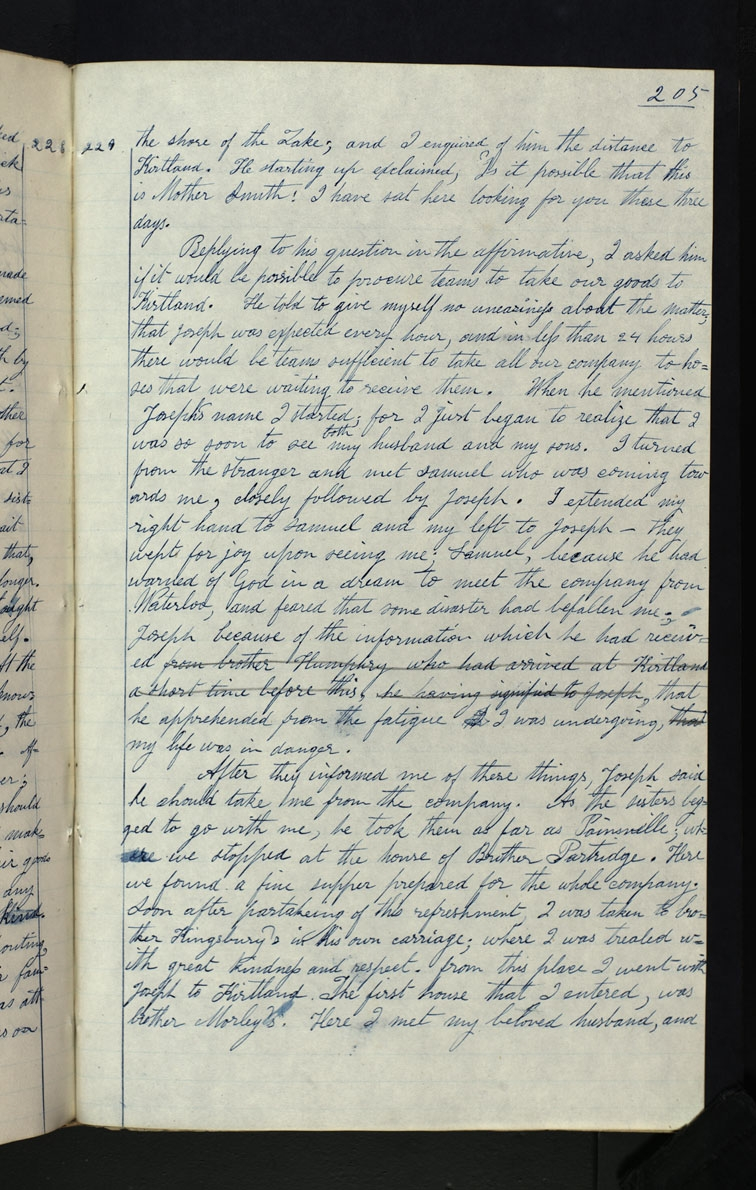 205
229 the shore of the Lake; and I enquired of him the distance to
Kirtland. He starting up exclaimed, Is it possible that this
is Mother Smith! I have sat here looking for you these three
days.
Replying to his question in the affirmative, I asked him
if it would be possible to procure teams to take our goods to
Kirtland. He told to give myself no uneaziness about the matter;
that Joseph was expected every hour, and in less than 24 hours
there would be teams sufficient to take all our company to ho=
ses that were waiting to receive them. When he mentioned
Joseph's name I started; for I just began to realize that I
was so soon to see both my husband and my sons. I turned
from the stranger and met Samuel who was coming tow
ards me, closely followed by Joseph. I extended my
right hand to Samuel and my left to Joseph — They
wept for joy upon seeing me; Samuel, because he had
warned of God in a dream to meet the company from
Waterloo, and feared that some disaster had befallen me;
Joseph because of the information which he had receiv=
ed from brother Humphry who had arrived at Kirtland
a short time before this, he having signified to Joseph, that
he apprehended from the fatigue I was undergoing, that
my life was in danger.
After they informed me of these things, Joseph said
he should take me from the company. As the sisters beg=
ged to go with me, he took them as far as Painsville; wh=
ere we stopped at the house of Brother Partridge. Here
we found a fine supper prepared for the whole company.
Soon after partakeing of this refreshment, I was taken to bro=
ther Kingsbury's in his own carriage; where I was treated w=
ith great kindness and respect. From this place I went with
Joseph to Kirtland. The first house that I entered, was
brother Morley's. Here I met my beloved husband, and